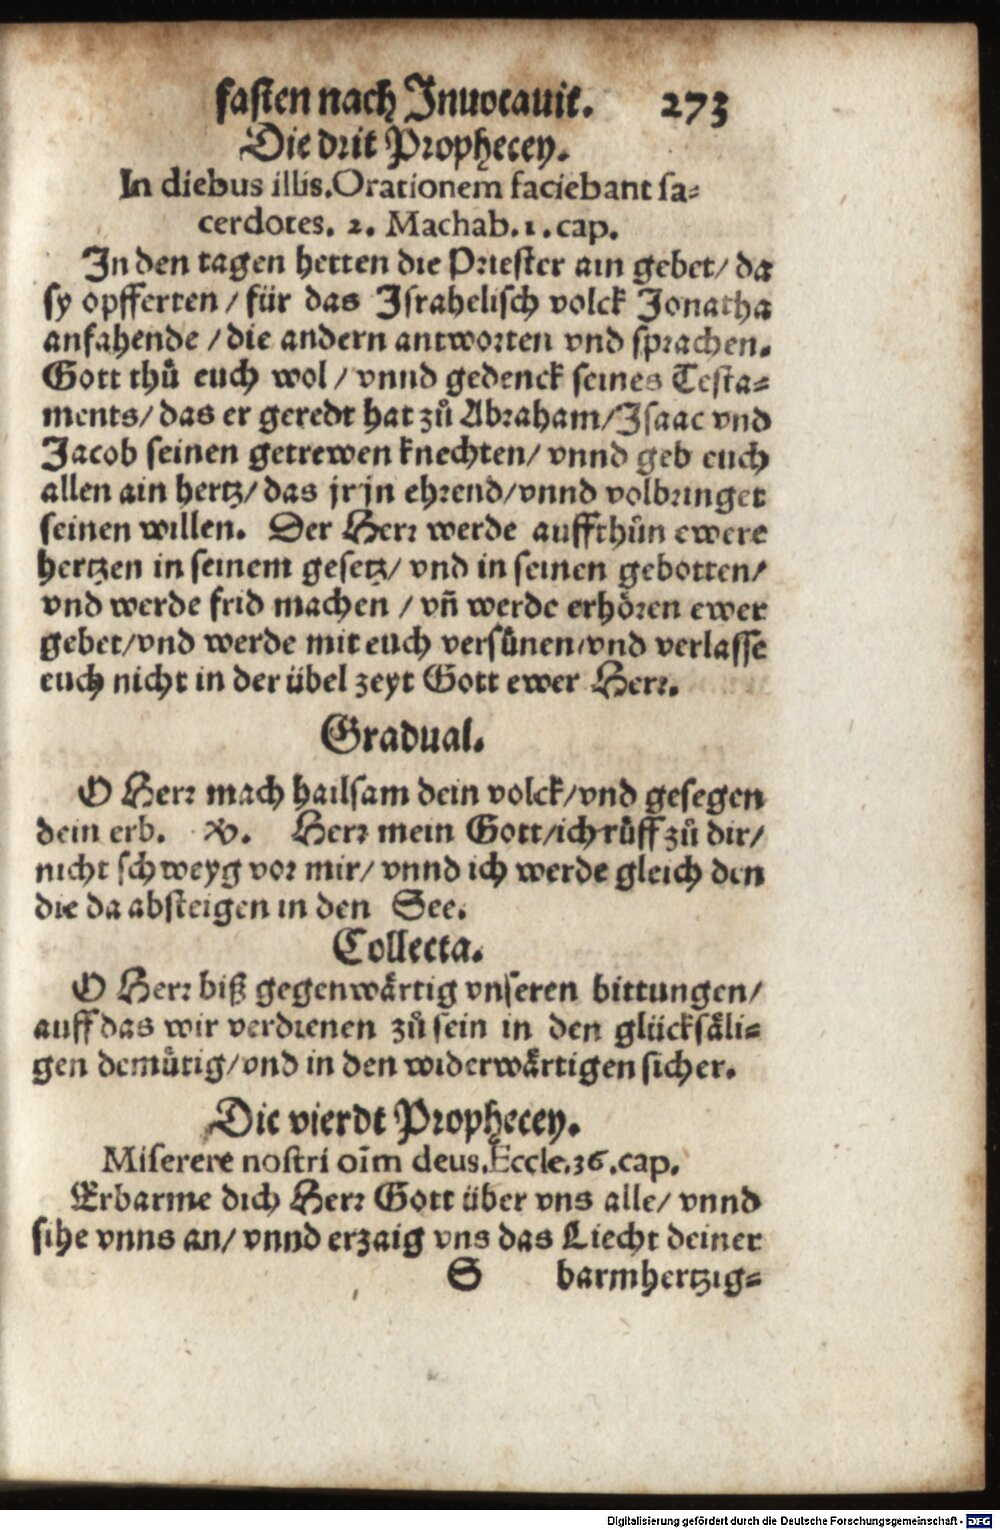 fasten nach Inuocauit. 273
Die drit Prophecey.
In diebus illis. Orationem faciebant sa-
cerdotes. 2. Machab. 1. cap.
In den tagen hetten die Priester ain gebet/ da
sy opfferten / für das Israhelisch volck Jonatha
anfahende / die andern antworten vnd sprachen.
Gott thů euch wol / vnnd gedenck seines Testa=
ments/ das er geredt hat zů Abraham/ Isaac vnd
Jacob seinen getrewen knechten/ vnnd geb euch
allen ain hertz/ das jr jn ehrend/ vnnd volbringet
seinen willen. Der Herr werde auffthůn ewere
hertzen in seinem gesetz/ vnd in seinen gebotten/
vnd werde frid machen / vñ werde erhören ewer
gebet/ vnd werde mit euch versůnen/ vnd verlasse
euch nicht in der übel zeyt Gott ewer Herr.
Gradual.
O Herr mach hailsam dein volck/ vnd gesegen
dein erb. ℣. Herr mein Gott/ ich růff zů dir/
nicht schweyg vor mir/ vnnd ich werde gleich den
die da absteigen in den See.
Collecta.
O Herr biß gegenwårtig vnseren bittungen/
auff das wir verdienen zů sein in den glücksåli=
gen demůtig/ vnd in den widerwårtigen sicher.
Die vierdt Prophecey.
Miserere nostri oīm deus. Eccle. 36. cap.
Erbarme dich Herr Gott über vns alle/ vnnd
sihe vnns an/ vnnd erzaig vns das Liecht deiner
S barmhertzig=
Digitalisierung gefördert durch die Deutsche Forschungsgemeinschaft - DFG